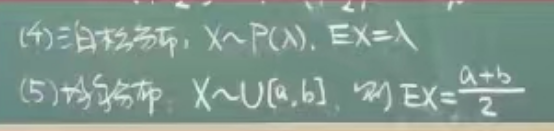 (4) 泊松分布, X~P(λ), EX=λ
(5) 均匀分布 X~U[a,b], 则 EX=\frac{a+b}{2}